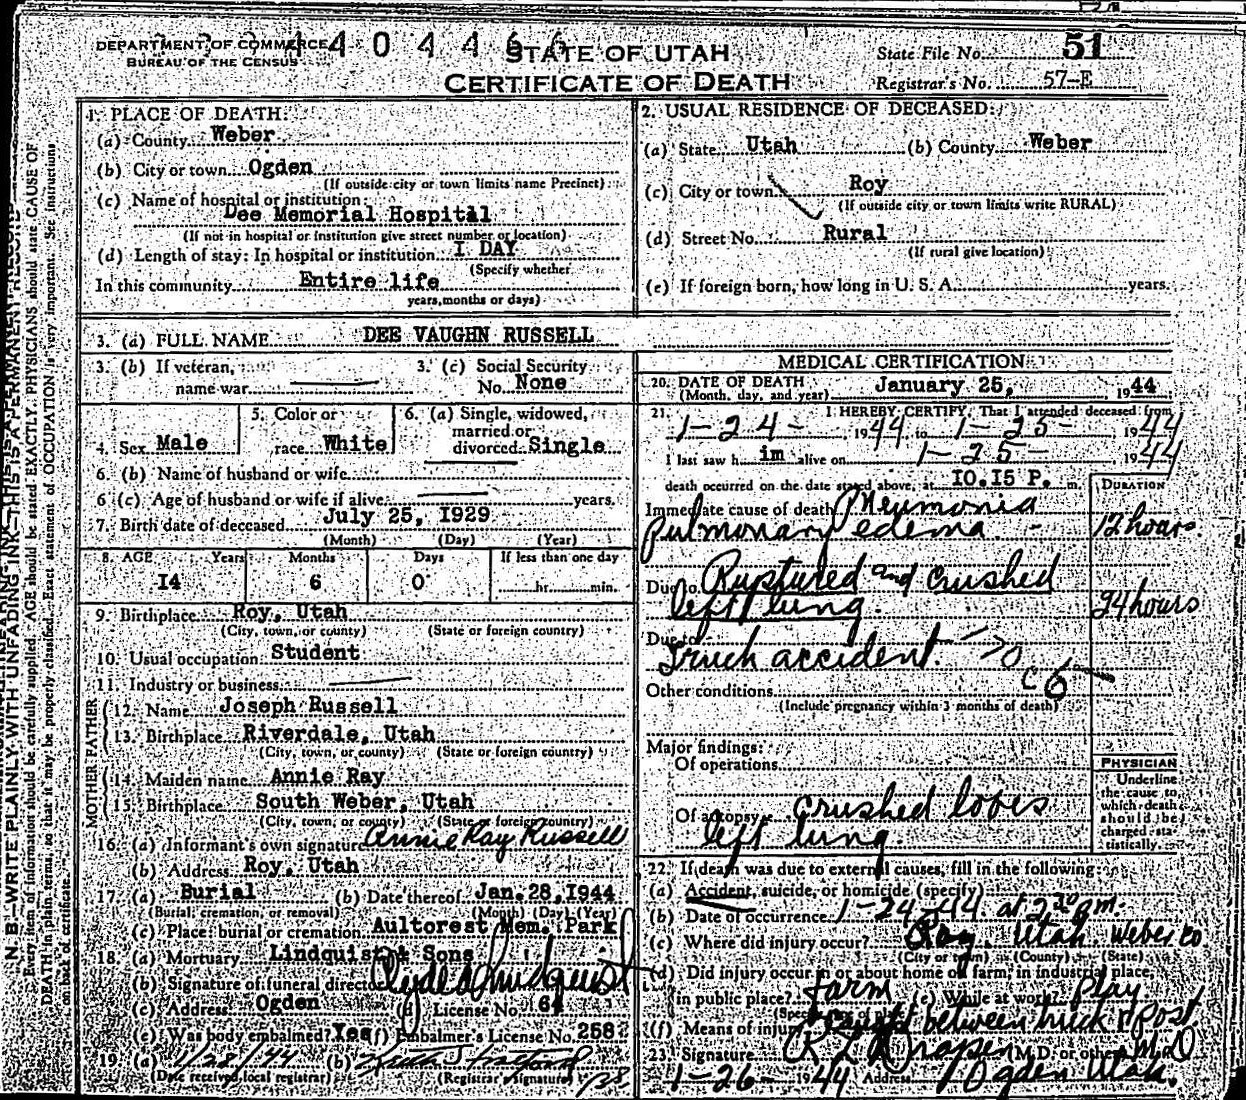 DEPARTMENT OF COMMERCE
BUREAU OF THE CENSUS
STATE OF UTAH
CERTIFICATE OF DEATH
State File No. 51
Registrar's No. 57-E
N. B.—WRITE PLAINLY WITH UNFADING INK—THIS IS A PERMANENT RECORD
Every item of information should be carefully supplied. AGE should be stated EXACTLY. PHYSICIANS should state CAUSE OF
DEATH in plain terms, so that it may be properly classified. Exact statement of OCCUPATION is very important. See instructions
on back of certificate.
1. PLACE OF DEATH:
(a) County Weber
(b) City or town Ogden
(If outside city or town limits name Precinct)
(c) Name of hospital or institution:
Dee Memorial Hospital
(If not in hospital or institution give street number or location)
(d) Length of stay: In hospital or institution I DAY
(Specify whether
In this community Entire life
years, months or days)
2. USUAL RESIDENCE OF DECEASED:
(a) State Utah (b) County Weber
(c) City or town Roy
(If outside city or town limits write RURAL)
(d) Street No. Rural
(If rural give location)
(e) If foreign born, how long in U. S. A. years.
3. (a) FULL NAME DEE VAUGHN RUSSELL
3. (b) If veteran, name war
3. (c) Social Security No. None
4. Sex Male
5. Color or race White
6. (a) Single, widowed, married or divorced Single
6 (b) Name of husband or wife
6 (c) Age of husband or wife if alive years.
7. Birth date of deceased July 25, 1929
(Month) (Day) (Year)
8. AGE Years Months Days If less than one day
I4 6 0 hr. min.
9. Birthplace Roy, Utah
(City, town, or county) (State or foreign country)
10. Usual occupation Student
11. Industry or business
FATHER
12. Name Joseph Russell
13. Birthplace Riverdale, Utah
(City, town, or county) (State or foreign country)
MOTHER
14. Maiden name Annie Ray
15. Birthplace South Weber, Utah
(City, town, or county) (State or foreign country)
16. (a) Informant's own signature Annie Ray Russell
(b) Address Roy, Utah
17. (a) Burial (b) Date thereof Jan. 28, 1944
(Burial, cremation, or removal) (Month) (Day) (Year)
(c) Place: burial or cremation Aultorest Mem. Park
18. (a) Mortuary Lindquist & Sons
(b) Signature of funeral director Clyde Lindquist
(c) Address Ogden License No. 64
(e) Was body embalmed? Yes (f) Embalmer's License No. 258
19. (a) 1/28/44 (b)
(Date received local registrar) (Registrar's signature)
MEDICAL CERTIFICATION
20. DATE OF DEATH January 25, 1944
(Month, day, and year)
21. I HEREBY CERTIFY, That I attended deceased from
1-24- 1944 to 1-25- 1944
I last saw him alive on 1-25- 1944
death occurred on the date stated above, at I0.I5 P. m.
DURATION
Immediate cause of death Pneumonia
pulmonary edema - 12 hours.
Due to Ruptured and crushed
left lung. 24 hours
Due to
Truck accident.
Other conditions
(Include pregnancy within 3 months of death)
Major findings:
Of operations
Of autopsy crushed lobes
left lung.
PHYSICIAN
Underline
the cause to
which death
should be
charged sta-
tistically.
22. If death was due to external causes, fill in the following:
(a) Accident, suicide, or homicide (specify)
(b) Date of occurrence 1-24-44 at 2 30 pm.
(c) Where did injury occur? Roy. Utah. Weber co
(City or town) (County) (State)
(d) Did injury occur in or about home or farm, in industrial place,
in public place? Farm (e) While at work? Play
(f) Means of injury Caught between truck & post
23. Signature R L Draper (M.D. or other) M.D
1-26- 1944 Address Ogden Utah.